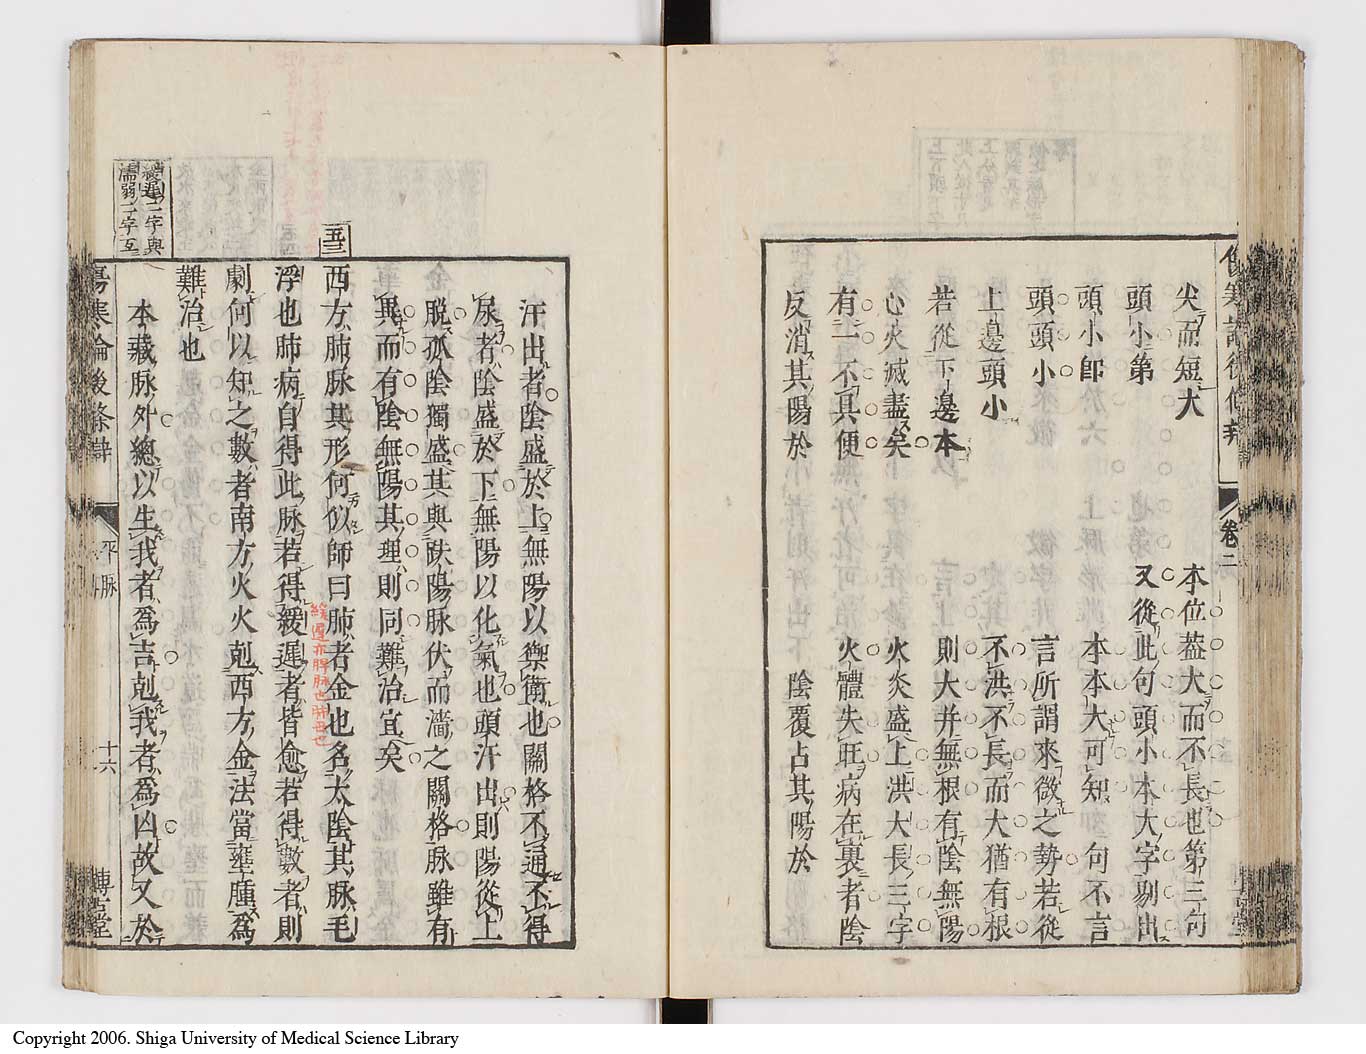 尖而短大　本位蓋大而不長也第三句
頭小第　又從此句頭小本大字剔出
頭小即　本本大可知何不言
頭頭小　言所謂來微之勢若從
上邊頭小　不洪不長而大猶有根
若從下邊本　則大并無根有陰無陽
心火滅盡矣　火炎盛上洪大長三字
有一不具便　火體失旺病在裏者陰
反消其陽於　陰覆占其陽於
卷二
汗出者陰盛於上無陽以禦衛也關格不通不得
尿者陰盛於下無陽以化氣也頭汗出則陽從上
脫孤陰獨盛其與趺陽脉伏而濇之關格脉雖有
異而有陰無陽其理則同難治宜矣
五三
西方肺脉其形何似師曰肺者金也名太陰其脉毛
緩遲亦脾脉也肺母也
浮也肺病自得此脉若得緩遲者皆愈若得數者則
劇何以知之數者南方火火剋西方金法當壅腫爲
難治也
本藏脉外總以生我者爲吉剋我者爲凶故又於
緩遲二字與
濡弱二字互
傷寒論後條辨　平脉　十六　博古堂
Copyright 2006. Shiga University of Medical Science Library